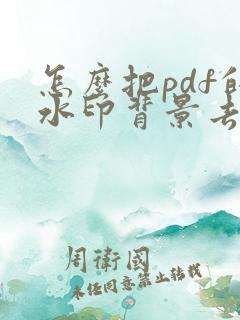 怎麼把pdf的
水印背景去
周衛國
未经同意禁止转载